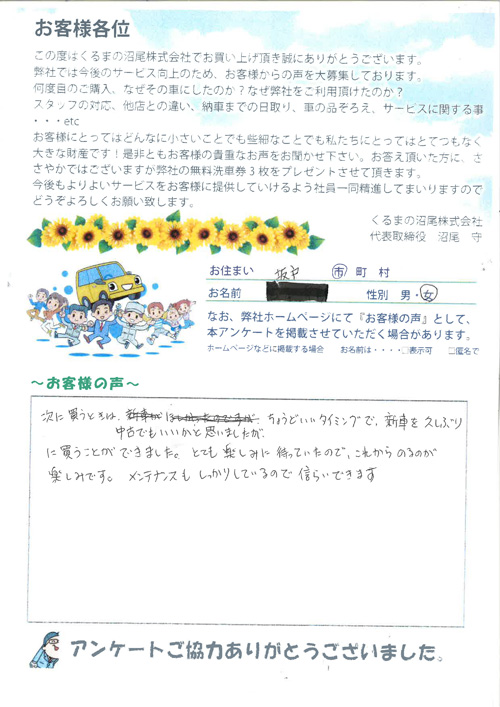 お客様各位
この度はくるまの沼尾株式会社でお買い上げ頂き誠にありがとうございます。
弊社では今後のサービス向上のため、お客様からの声を大募集しております。
何度目のご購入、なぜその車にしたのか？なぜ弊社をご利用頂けたのか？
スタッフの対応、他店との違い、納車までの日取り、車の品ぞろえ、サービスに関する事
・・・etc
お客様にとってはどんなに小さいことでも些細なことでも私たちにとってはとてつもなく
大きな財産です！是非ともお客様の貴重なお声をお聞かせ下さい。お答え頂いた方に、さ
さやかではございますが弊社の無料洗車券３枚をプレゼントさせて頂きます。
今後もよりよいサービスをお客様に提供していけるよう社員一同精進してまいりますので
どうぞよろしくお願い致します。
くるまの沼尾株式会社
代表取締役　沼尾　守
お住まい　坂東　市 町 村
お名前　性別　男・女
なお、弊社ホームページにて『お客様の声』として、
本アンケートを掲載させていただく場合があります。
ホームページなどに掲載する場合　お名前は・・・・□表示可　□匿名で
～お客様の声～
次に買うときは、新車がほしかったのですが、ちょうどいいタイミングで、新車を久しぶり
中古でもいいかと思いましたが、
に買うことができました。とても楽しみに待っていたので、これからのるのが
楽しみです。メンテナンスもしっかりしているので信らいできます
アンケートご協力ありがとうございました。